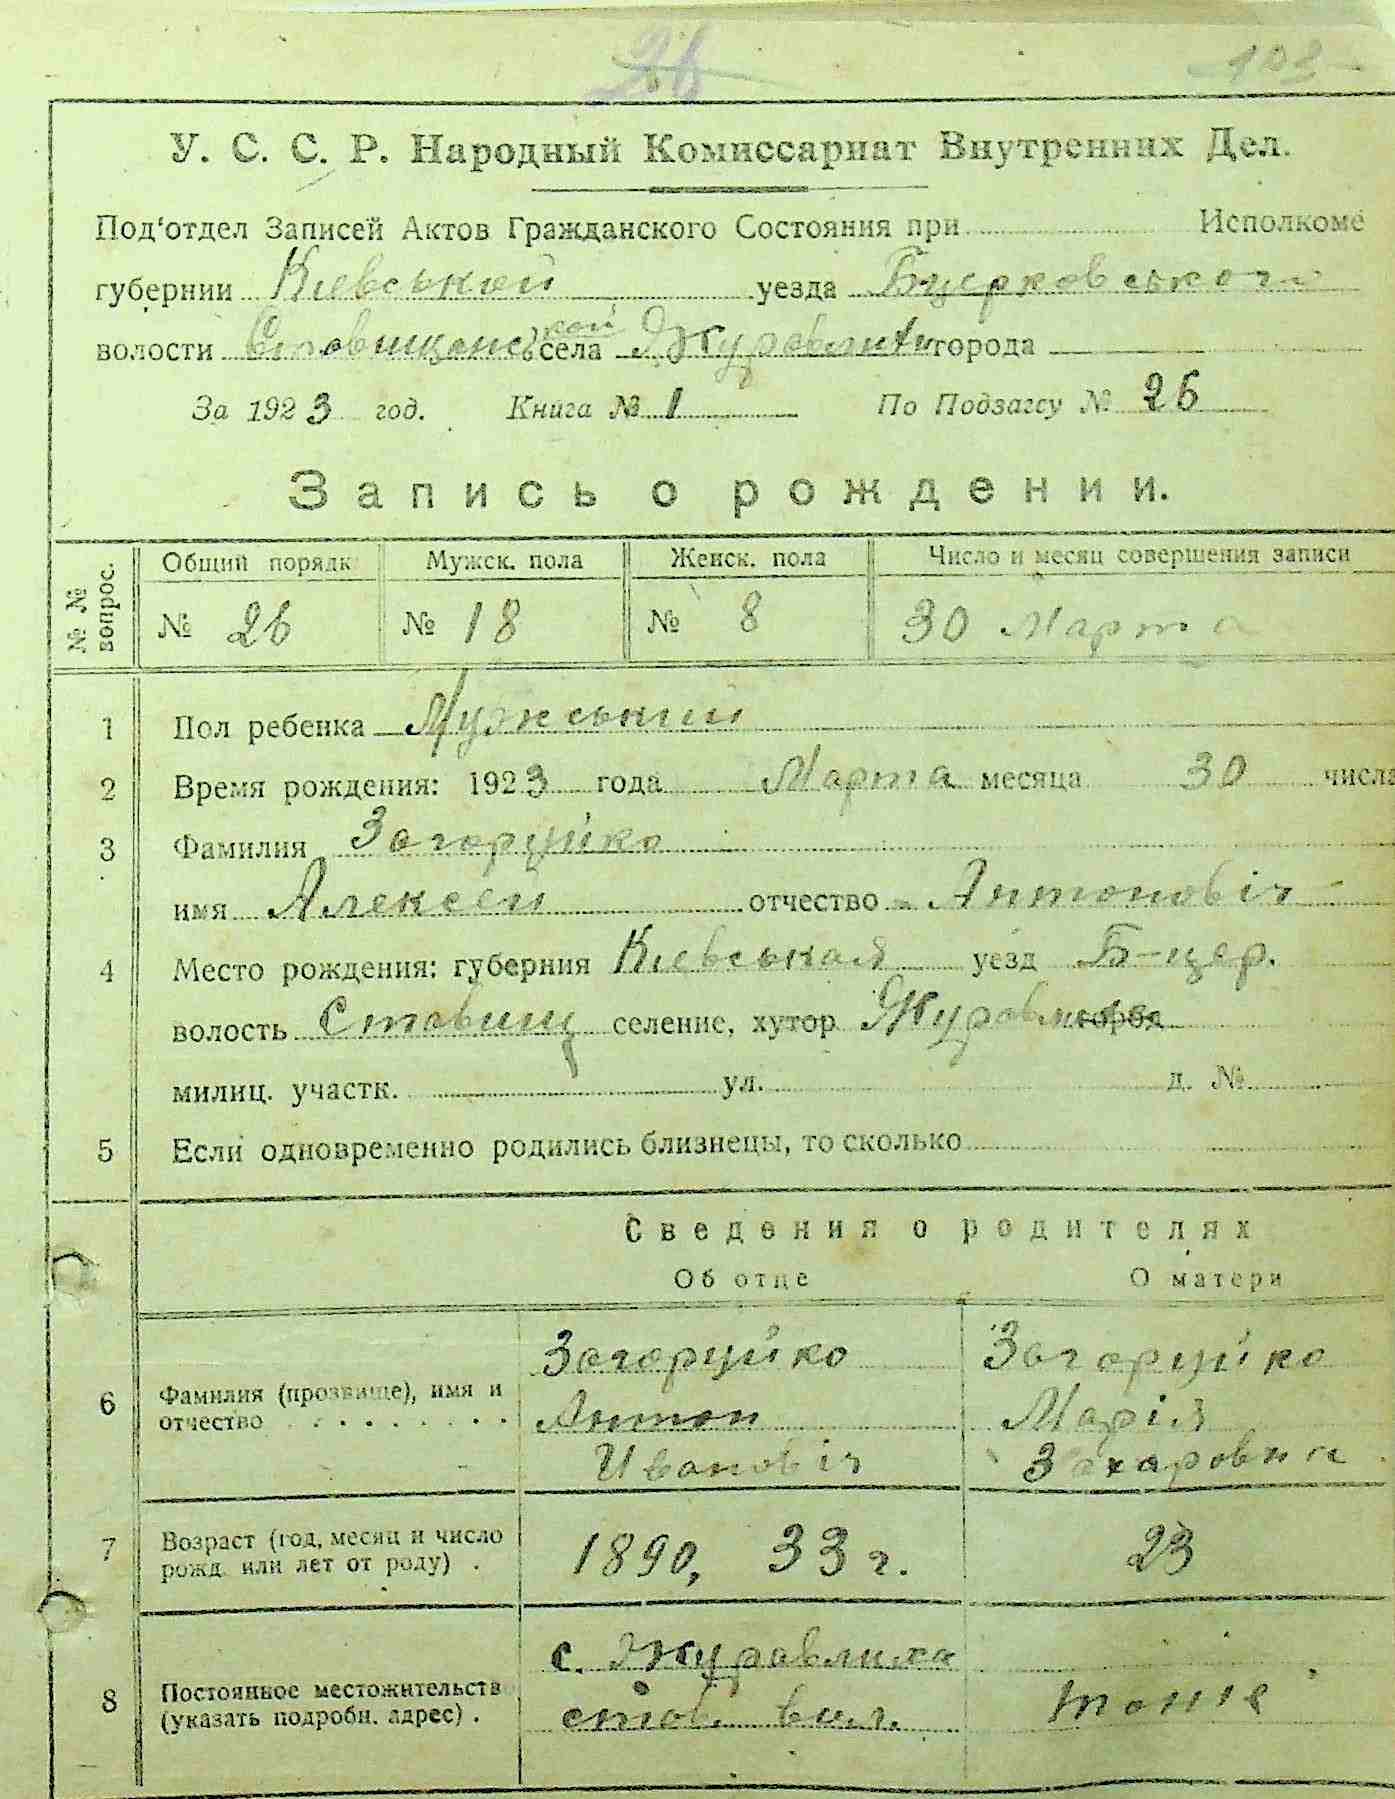 26
103
У. С. С. Р. Народный Комиссариат Внутренних Дел.
Под‘отдел Записей Актов Гражданского Состояния при Исполкоме
губернии Киевськой уезда Бцерковського
волости Ставищанской села Журавлихи города
За 1923 год. Книга № 1 По Подзагсу № 26
Запись о рождении.
№ № вопрос. Общий порядк Мужск. пола Женск. пола Число и месяц совершения записи
№ 26 № 18 № 8 30 Марта
1 Пол ребенка Мужський
2 Время рождения: 1923 года Марта месяца 30 числа
3 Фамилия Загоруйко
имя Алексей отчество Антоновіч
4 Место рождения: губерния Киевськая уезд Б-цер.
волость Ставищ селение, хутор город
милиц. участк. ул. д. №
5 Если одновременно родились близнецы, то сколько
Сведения о родителях
Об отце О матери
6 Фамилия (прозвище), имя и отчество Загоруйко Антон Ивановіч Загоруйко Марія Захаровна
7 Возраст (год, месяц и число рожд. или лет от роду) . 1890, 33 г. 23
8 Постоянное местожительств (указать подробн. адрес) . с. Журавлиха став. вол. тоже